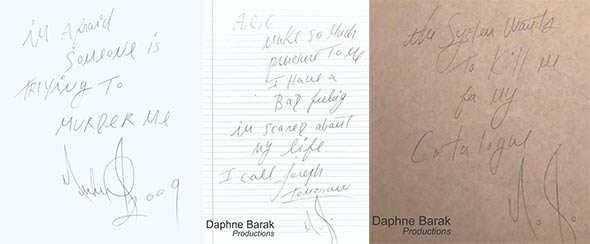 im afraid
someone is
trying to
murder me
2009
A.E.G
make so much
pressure to me
I have a
Bad feeling
im scared about
my life
I call joseph
Tomorrow
M. J.
Daphne Barak
Productions
the System wants
To Kill me
for my
Catalogue
M. J.
Daphne Barak
Productions